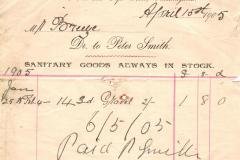 April 15th 1905
Mr Breeze
Dr. to Peter Smith.
SANITARY GOODS ALWAYS IN STOCK.
1905 £ s d
Jan
25 14 3rd 2/- 1 8 0
6/5/05
Paid P Smith